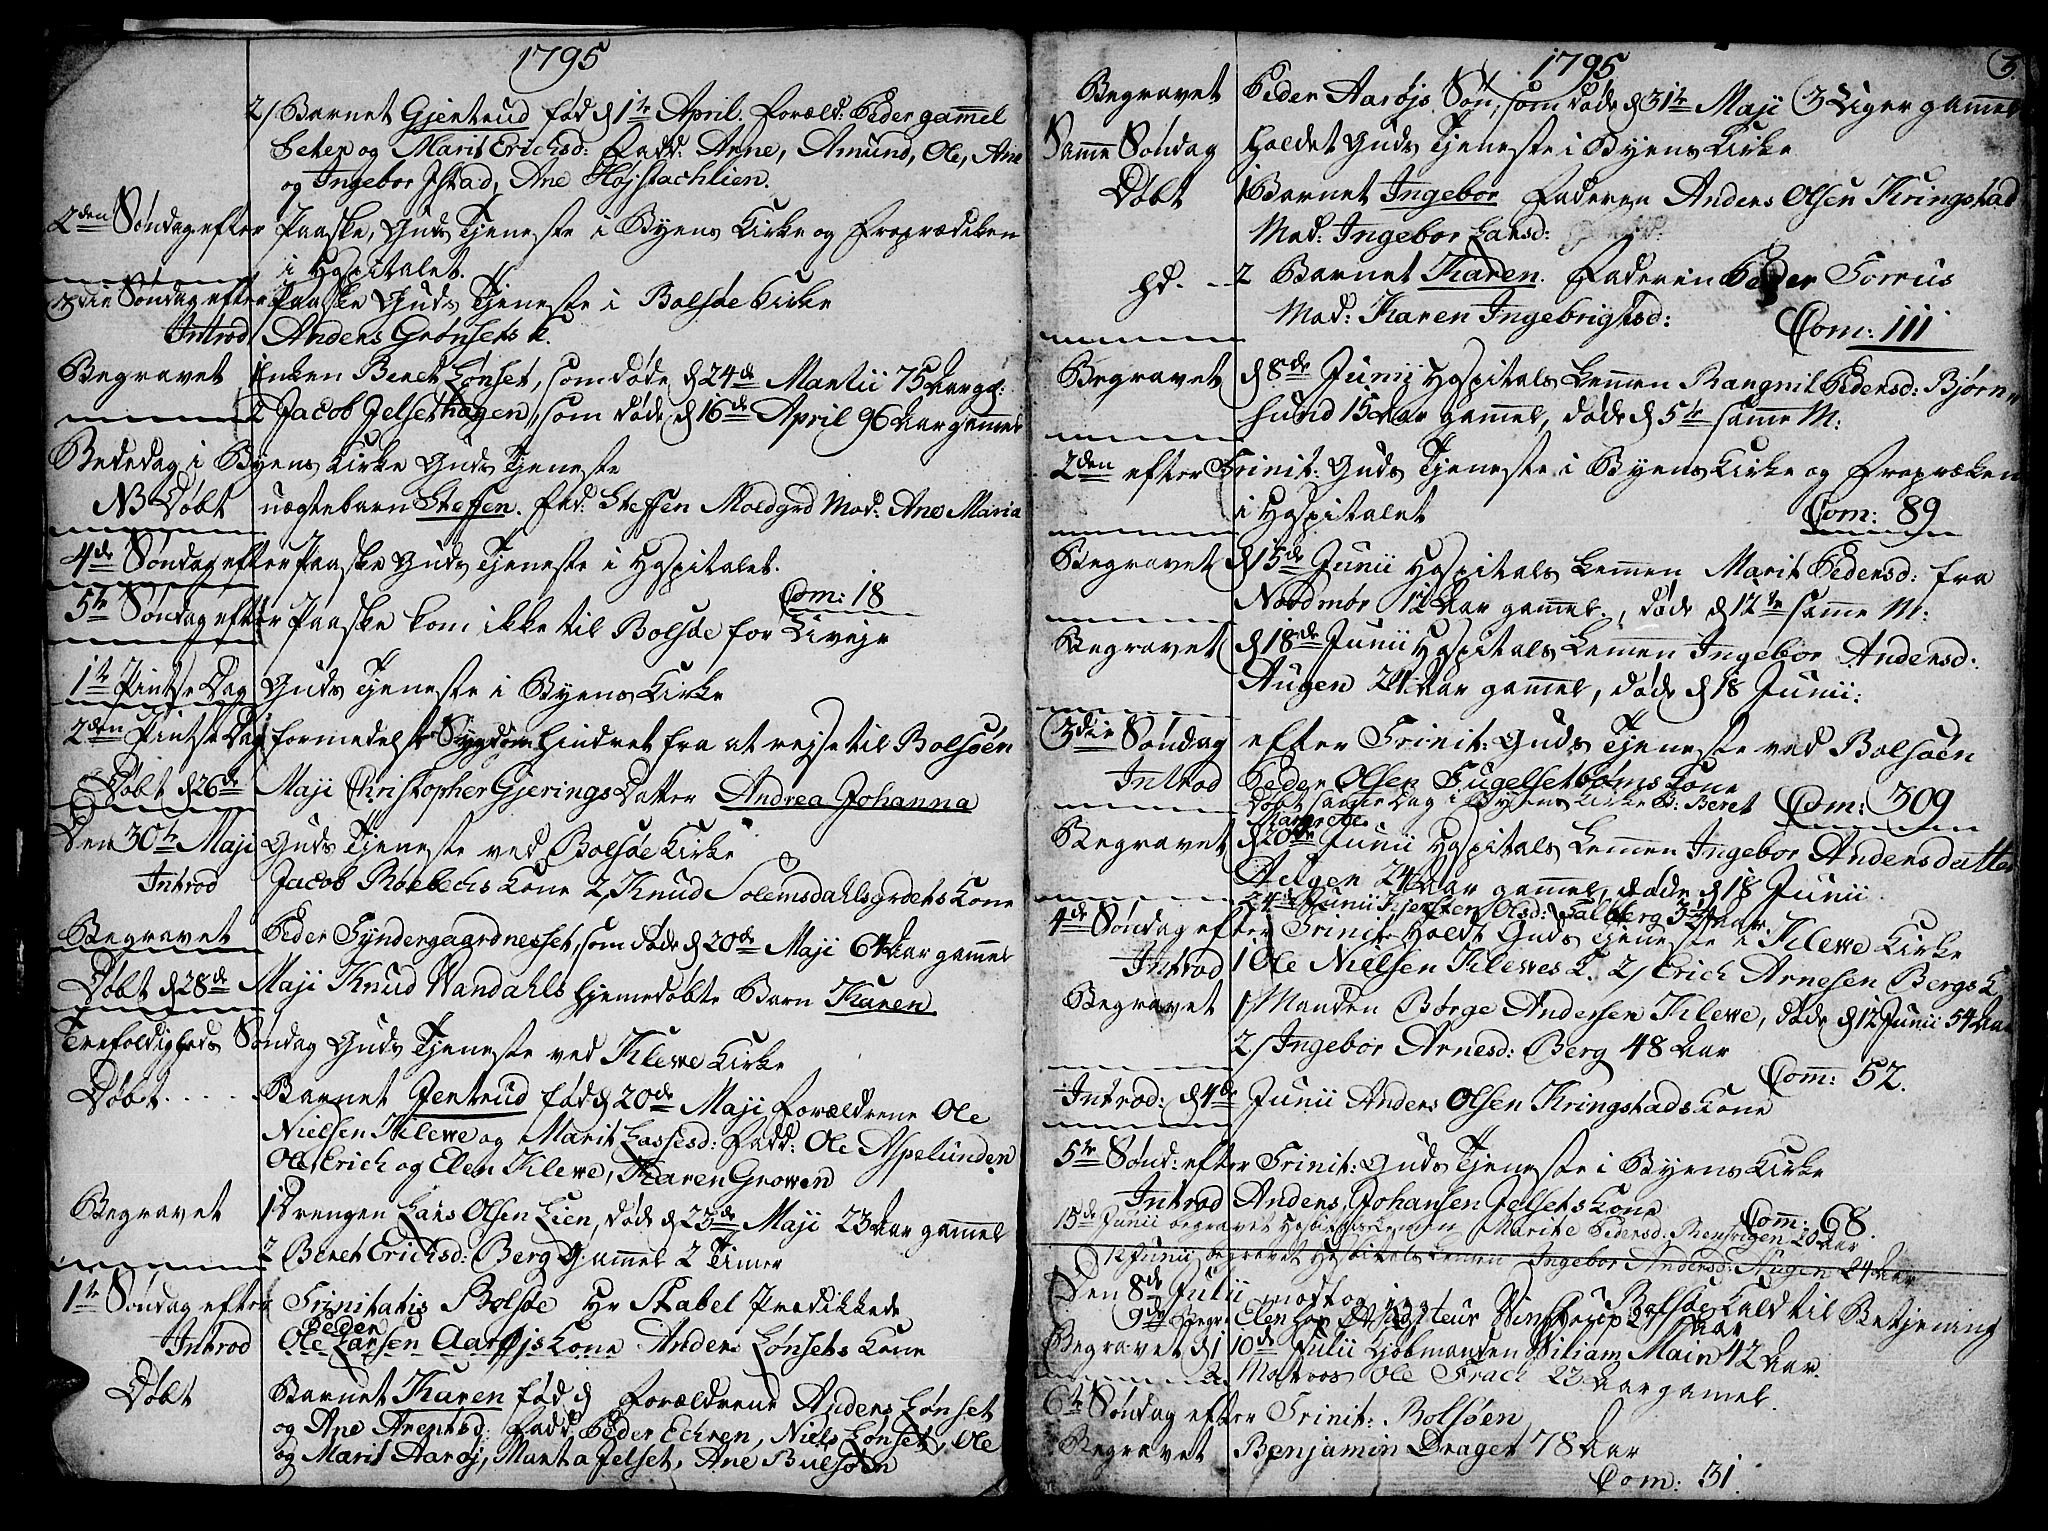 1795
2/ Barnet Gjentrud fød d 1te April. Foræld: Peder gammel
Seter og Marit Erichsd: Fadd: Arne, Amund, Ole, Ane
og Ingebor Istad, Ane Højstachlien.
2den Søndag efter Paaske, Guds Tjeneste i Byens Kirke og Froprædiken
i Hospitalet.
3die Søndag efter Paaske Guds Tjeneste i Bolsøe Kirke
Introd Anders Grønsets k.
Begravet 1 Enken Beret Lønset, som døde d 24de Martii 75 Aar g:
2 Jacob Jelsethagen, som døde d 16de April 96 Aar gammel
Bededag i Byens Kirke Guds Tjeneste
NB Døbt uægtebarn Steffen. Fad: Steffen Moldgrd Mod: Ane Maria
4de Søndag efter Paaske Guds Tjeneste i Hospitalet.
Com: 18
5te Søndag efter Paaske kom ikke til Bolsøe for Uvejr
1te Pintse Dag Guds Tjeneste i Byens Kirke
2den Pintse Dag formedelst Sygdom hindret fra at rejse til Bolsøen
Døbt d 26de Maji Christopher Gjerings Datter Andrea Johanna
Den 30te Maji Guds Tjeneste ved Bolsøe Kirke
Introd Jacob Røbechs Kone 2, Knud Solemsdahlsgrdets Kone
Begravet Peder Tyndergaardnesset, som døde d 20de Maji 64 Aar gammel
Døbt d 28de Maji Knud Wandahls hjemedøbte Barn Karen
Trefoldigheds Søndag Guds Tjeneste ved Klewe Kirke
Døbt.... Barnet Jentrud fød d 20de Maji Forældrene Ole
Nielsen Klewe og Marit Lassesd: Fadd: Ole Aspelunden
Ole, Erich og Elen Klewe, Karen Growen
Begravet 1 Drengen Lars Olsen Lien, døde d 23de Maji 23 Aar gammel
2 Beret Erichsd: Berg gammel 2 Timer
1te Søndag efter Trinitatis Bolsøe Hr Stabel Prædikkede
Peder
Introd Ole Larsen Aarøjs Kone Anders Lønsets Kone
Døbt Barnet Karen fød d Forældrene Anders Lønset
og Ane Arentsd: Fadd: Peder Echren, Niels Lønset, Ole
og Marit Aarøj, Marta Jelset, Ane Bulsøen
1795
3
Begravet Peder Aarøjs Søn, som døde d 31te Maji 3 Uger gammel
Samme Søndag holdet Guds Tjeneste i Byens Kirke
Døbt 1 Barnet Ingebor Faderen Anders Olsen Kringstad
Mod: Ingebor Larsd:
hd. - - 2 Barnet Karen. Faderen Peder Forrus
Mod: Karen Ingebrigtsd:
Com: 111
Begravet d 8de Junii Hospitals Lemmen Rangnil Pedersd: Bjørn
sund 15 Aar gammel, døde d 5te samme M:
2den efter Trinit: Guds Tjeneste i Byens Kirke og Fropræken
i Hospitalet
Com: 89
Begravet d 15de Junii Hospitals Lemmen Marit Pedersd: fra
Nordmør 12 Aar gammel., døde d 12te samme M:
Begravet d 18de Junii Hospitals Lemmen Ingebor Andersd:
Augen 24 Aar gammel, døde d 18 Junii:
3die Søndag efter Trinit: Guds Tjeneste ved Bolsøen
Introd Peder Olsen Fugelsetbølms Kone
Døbt samme Dag i Byens Kirke B: Beret
Margrete
Com: 309
Begravet d 20de Junii Hospitals Lemmen Ingebor Andersdatter
Augen 24 Aar gammel, døde d 18 Junii
24de Junii Kjersten Olsd: Talberg 3 Aar.
4de Søndag efter Trinit: holdt Guds Tjeneste i Klewe Kirke
Introd 1 Ole Nielsen Klewes K. 2/ Erich Arnesen Bergs K
Begravet 1/ Manden Børge Andersen Klewe, døde d 12 Junii 54 Aar
2/ Ingebor Arnesd: Berg 48 Aar
Com: 52.
Introd: d 4de Junii Anders Olsen Kringstads Kone
5te Sønd: efter Trinit: Guds Tjeneste i Byens Kirke
Introd Anders Johansen Jelsets Kone
Com: 68.
15de Junii begravet Hospitalslemmen Marite Pedersd: 20 Aar
12 Junii begravet Hospitals Lemmen Ingebor Andersd: Augen 24 Aar
Den 8de Julii modtog jeg Bolsøe Kald til Betjening
9de Begr: Elen
Aar
Begravet d 1 10de Julii Kjøbmanden Wiliam Main 42 Aar.
2. Matroos Ole Frach 23 Aar gamel.
6te Søndag efter Trinit: Bolsøen
Begravet Benjamin Drager 78 Aar
Com: 31.